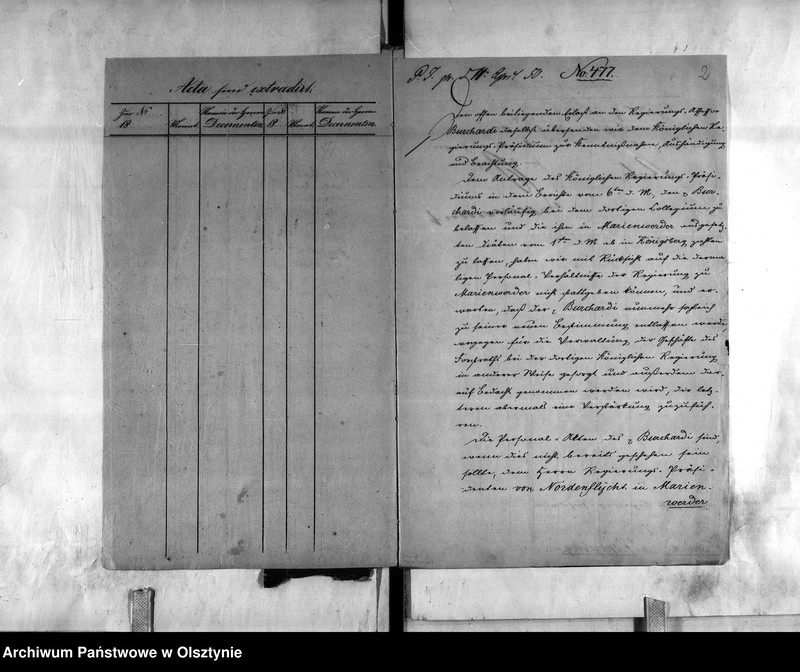 Acta sind extradirt.
Zur Nr.
18
Monat.
Namen des Herrn
Decernenten
Zur Nr.
18
Monat.
Namen des Herrn
Decernenten.
No. 477.
2
Den offen beiliegenden Erlaß an den Regierungs-Assessor
Burchardi daselbst übersenden wir dem Königlichen Re-
gierungs-Präsidium zur Kenntnißnahme, Aushändigung
und Beachtung.
Dem Antrage des Königlichen Regierungs-Präsi-
diums in dem Berichte vom 6ten d. M., den p Bur-
chardi vorläufig bei dem dortigen Collegium zu
belassen und die ihm in Marienwerder ausgesetz-
ten Diäten vom 1ten d. M. ab in Königsberg zahlen
zu lassen, haben wir mit Rücksicht auf die derma-
ligen Personal-Verhältnisse der Regierung zu
Marienwerder nicht stattgeben können, und er-
warten, daß der p Burchardi nunmehr sogleich
zu seiner neuen Bestimmung entlassen werde,
wogegen für die Verwaltung der Geschäfte des
Forstraths bei der dortigen Königlichen Regierung
in anderer Weise gesorgt und außerdem dar-
auf Bedacht genommen werden wird, der letz-
teren abermals eine Verstärkung zuzufüh-
ren.
Die Personal-Akten des p Burchardi sind,
wenn dies nicht bereits geschehen sein
sollte, dem Herrn Regierungs-Präsi-
denten von Nordenflycht in Marien-
werder
Archiwum Państwowe w Olsztynie